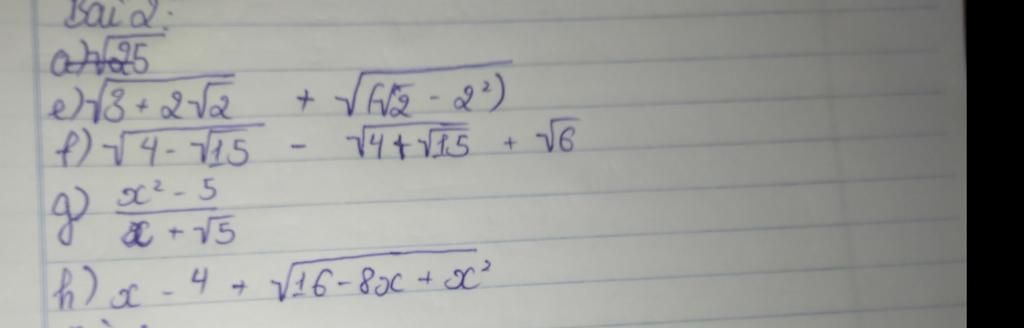 Bài 2:
a) √25
e) √(3 + 2√2) + √((√2 - 2²)
f) √(4 - √15) - √(4 + √15) + √6
g) (x² - 5)/(x + √5)
h) x - 4 + √(16 - 8x + x²)